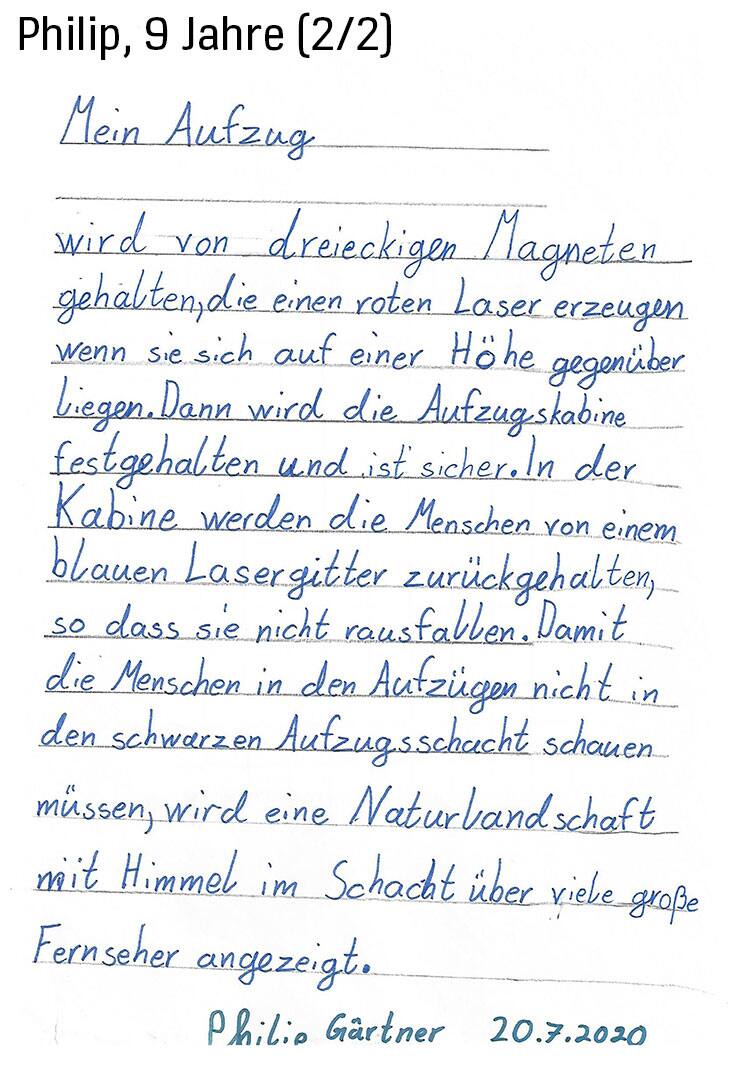 Philip, 9 Jahre (2/2)
Mein Aufzug
wird von dreieckigen Magneten
gehalten, die einen roten Laser erzeugen
wenn sie sich auf einer Höhe gegenüber
liegen. Dann wird die Aufzugskabine
festgehalten und ist sicher. In der
Kabine werden die Menschen von einem
blauen Lasergitter zurückgehalten,
so dass sie nicht rausfallen. Damit
die Menschen in den Aufzügen nicht in
den schwarzen Aufzugsschacht schauen
müssen, wird eine Naturlandschaft
mit Himmel im Schacht über viele große
Fernseher angezeigt.
Philip Gärtner 20.7.2020